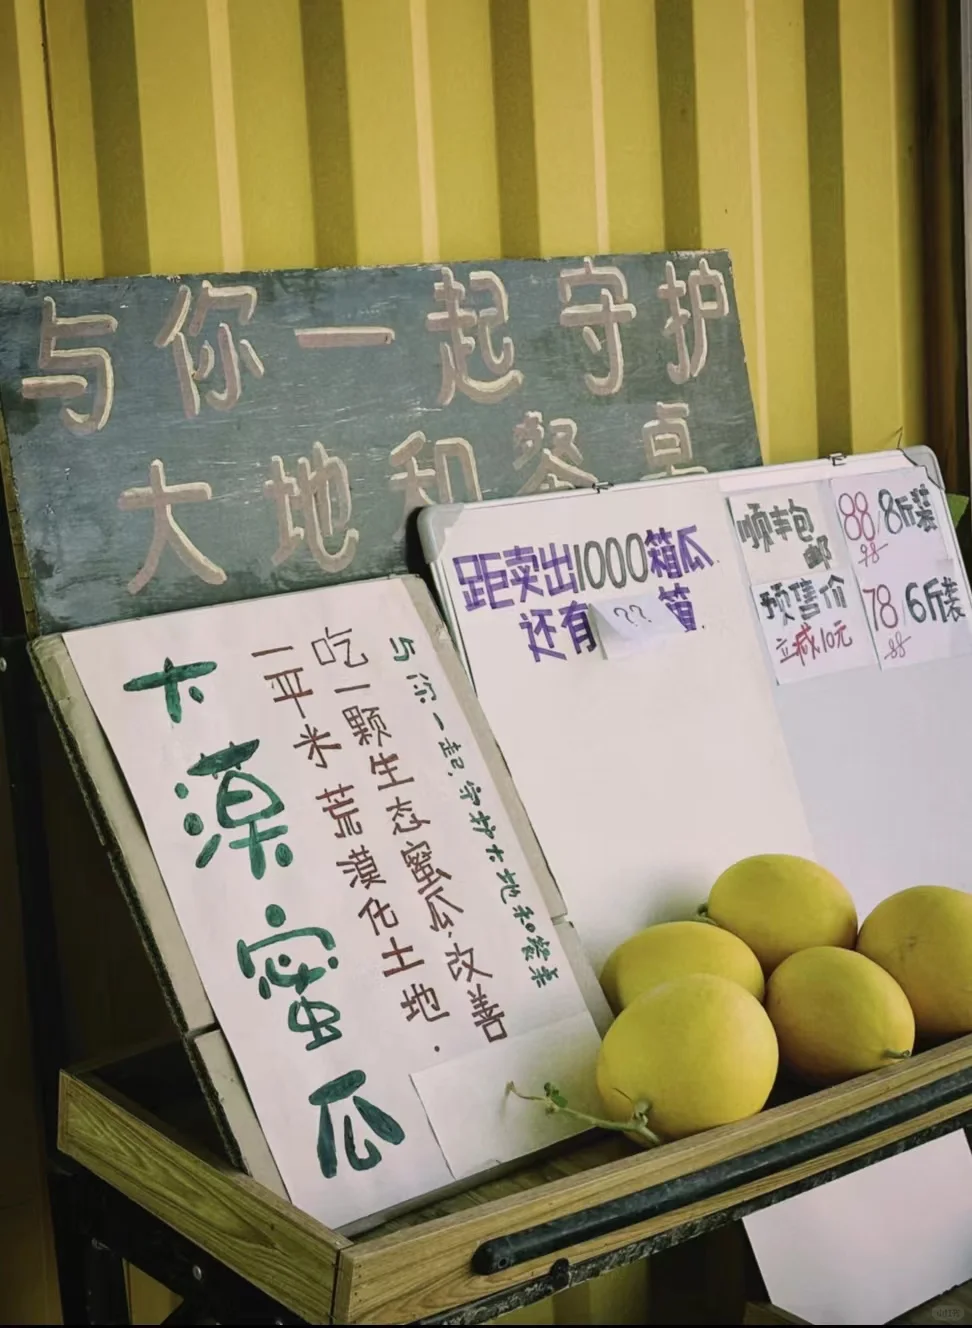 与你一起守护
大地和餐桌
卡漠蜜瓜
与你一起,守护大地和餐桌
吃一颗生态蜜瓜,改善
一平米荒漠化土地.
距卖出1000箱瓜
还有??箱.
顺丰包邮
88/8斤装
98
预售价
立减10元
78/6斤装
88